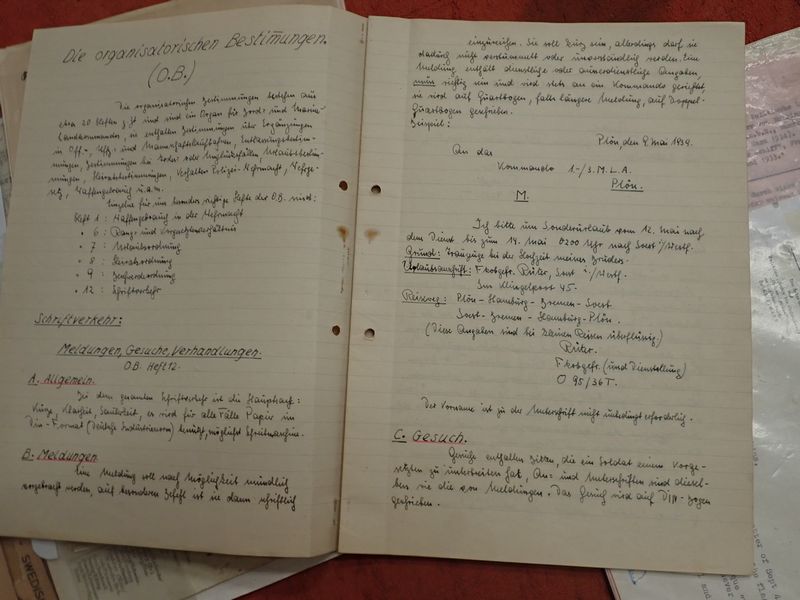 Die organisatorischen Bestimmungen.
(O.B.)
Die organisatorischen Bestimmungen bestehen aus
etwa 20 Heften z. Zt und sind ein Organ für Bord= und Marine-
Landkommandos, sie enthalten Bestimmungen über Ergänzungen
in Off.-, Uffz. und Mannschaftslaufbahnen, Entlassungsbestim-
mungen, Bestimmungen bei Todes= oder Unglücksfällen, Urlaubsbestim-
mungen, Heiratsbestimmungen, Verhalten Polizei-Wehrmacht, Wehrge-
setz, Waffengebrauch u.a.m.
Einzelne für uns besonders wichtige Hefte der O.B. sind:
Heft 1 : Waffengebrauch in der Wehrmacht
" 6 : Rang- und Vorgesetztenverhältnis
" 7 : Urlaubsordnung
" 8 : Heiratsordnung
" 9 : Beschwerdeordnung
" 12 : Schriftverkehr
Schriftverkehr:
Meldungen, Gesuche, Verhandlungen.
O.B. Heft 12.
A. Allgemein.
Bei dem ganzen Schriftverkehr ist die Hauptsache:
Kürze, Klarheit, Sauberkeit, es wird für alle Fälle Papier im
Din-Format (Deutsche Industrienorm) benutzt, möglichst Schreibmaschine.
B. Meldungen
Eine Meldung soll nach Möglichkeit mündlich
vorgebracht werden, auf besonderen Befehl ist sie dann schriftlich
einzureichen. Sie soll kurz sein, allerdings darf sie
dadurch nicht verstümmelt oder unverständlich werden. Eine
Meldung enthält dienstliche oder ausserdienstliche Angaben,
muss richtig sein und wird stets an ein Kommando gerichtet,
sie wird auf Quartbogen, falls längere Meldung, auf Doppel-
Quartbogen geschrieben.
Beispiel:
Plön, den 9. Mai 1939.
An das
Kommando 1.-/3. M.L.A.
Plön.
M.
Ich bitte um Sonderurlaub vom 12. Mai nach
dem Dienst bis zum 14. Mai 0200 Uhr nach Soest i/Westf.
Grund: Trauzeuge bei der Hochzeit meines Bruders.
Urlaubsanschrift: Fkobgefr. Rüter, Soest i/Westf.
Im Klingelpoot 45.
Reiseweg: Plön - Hamburg - Bremen - Soest.
Soest - Bremen - Hamburg - Plön.
(Diese Angaben sind bei kleinen Reisen überflüssig.)
Rüter.
Fkobgefr. (und Dienststellung)
O 95/36 T.
Der Vorname ist zu der Unterschrift nicht unbedingt erforderlich.
C. Gesuch.
Gesuche enthalten Bitten, die ein Soldat einem Vorge-
setzten zu unterbreiten hat, An= und Unterschriften sind diesel-
ben wie die von Meldungen. Das Gesuch wird auf DIN-Bogen
geschrieben.
SWEDISH